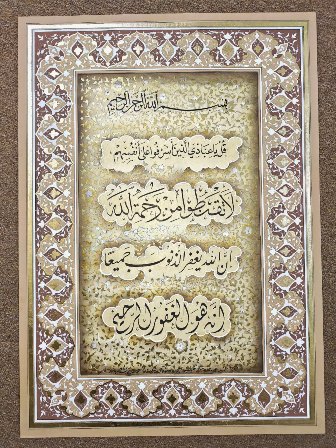 بسم الله الرحمن الرحيم
قل يا عبادي الذين أسرفوا على أنفسهم
لا تقنطوا من رحمة الله
ان الله يغفر الذنوب جميعا
انه هو الغفور الرحيم